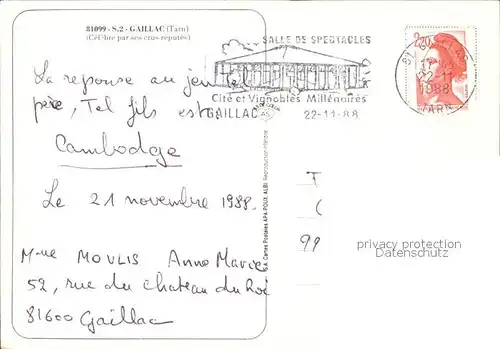 81099 - S.2 - GAILLAC (Tarn)
(Célèbre par ses crus réputés)
SALLE DE SPECTACLES
Cité et Vignobles Millénaires
GAILLAC
22-11-88
2,20
22-11
1988
TARN
La reponse au jeu tel
père, Tel fils est
Cambodge
Le 21 novembre 1988.
Mme MOULIS Anne Marie
52, rue du chateau du Roi
81600 Gaillac
S.A. Cartes Postales APA-POUX, ALBI Reproduction interdite
T
99
privacy protection
Datenschutz